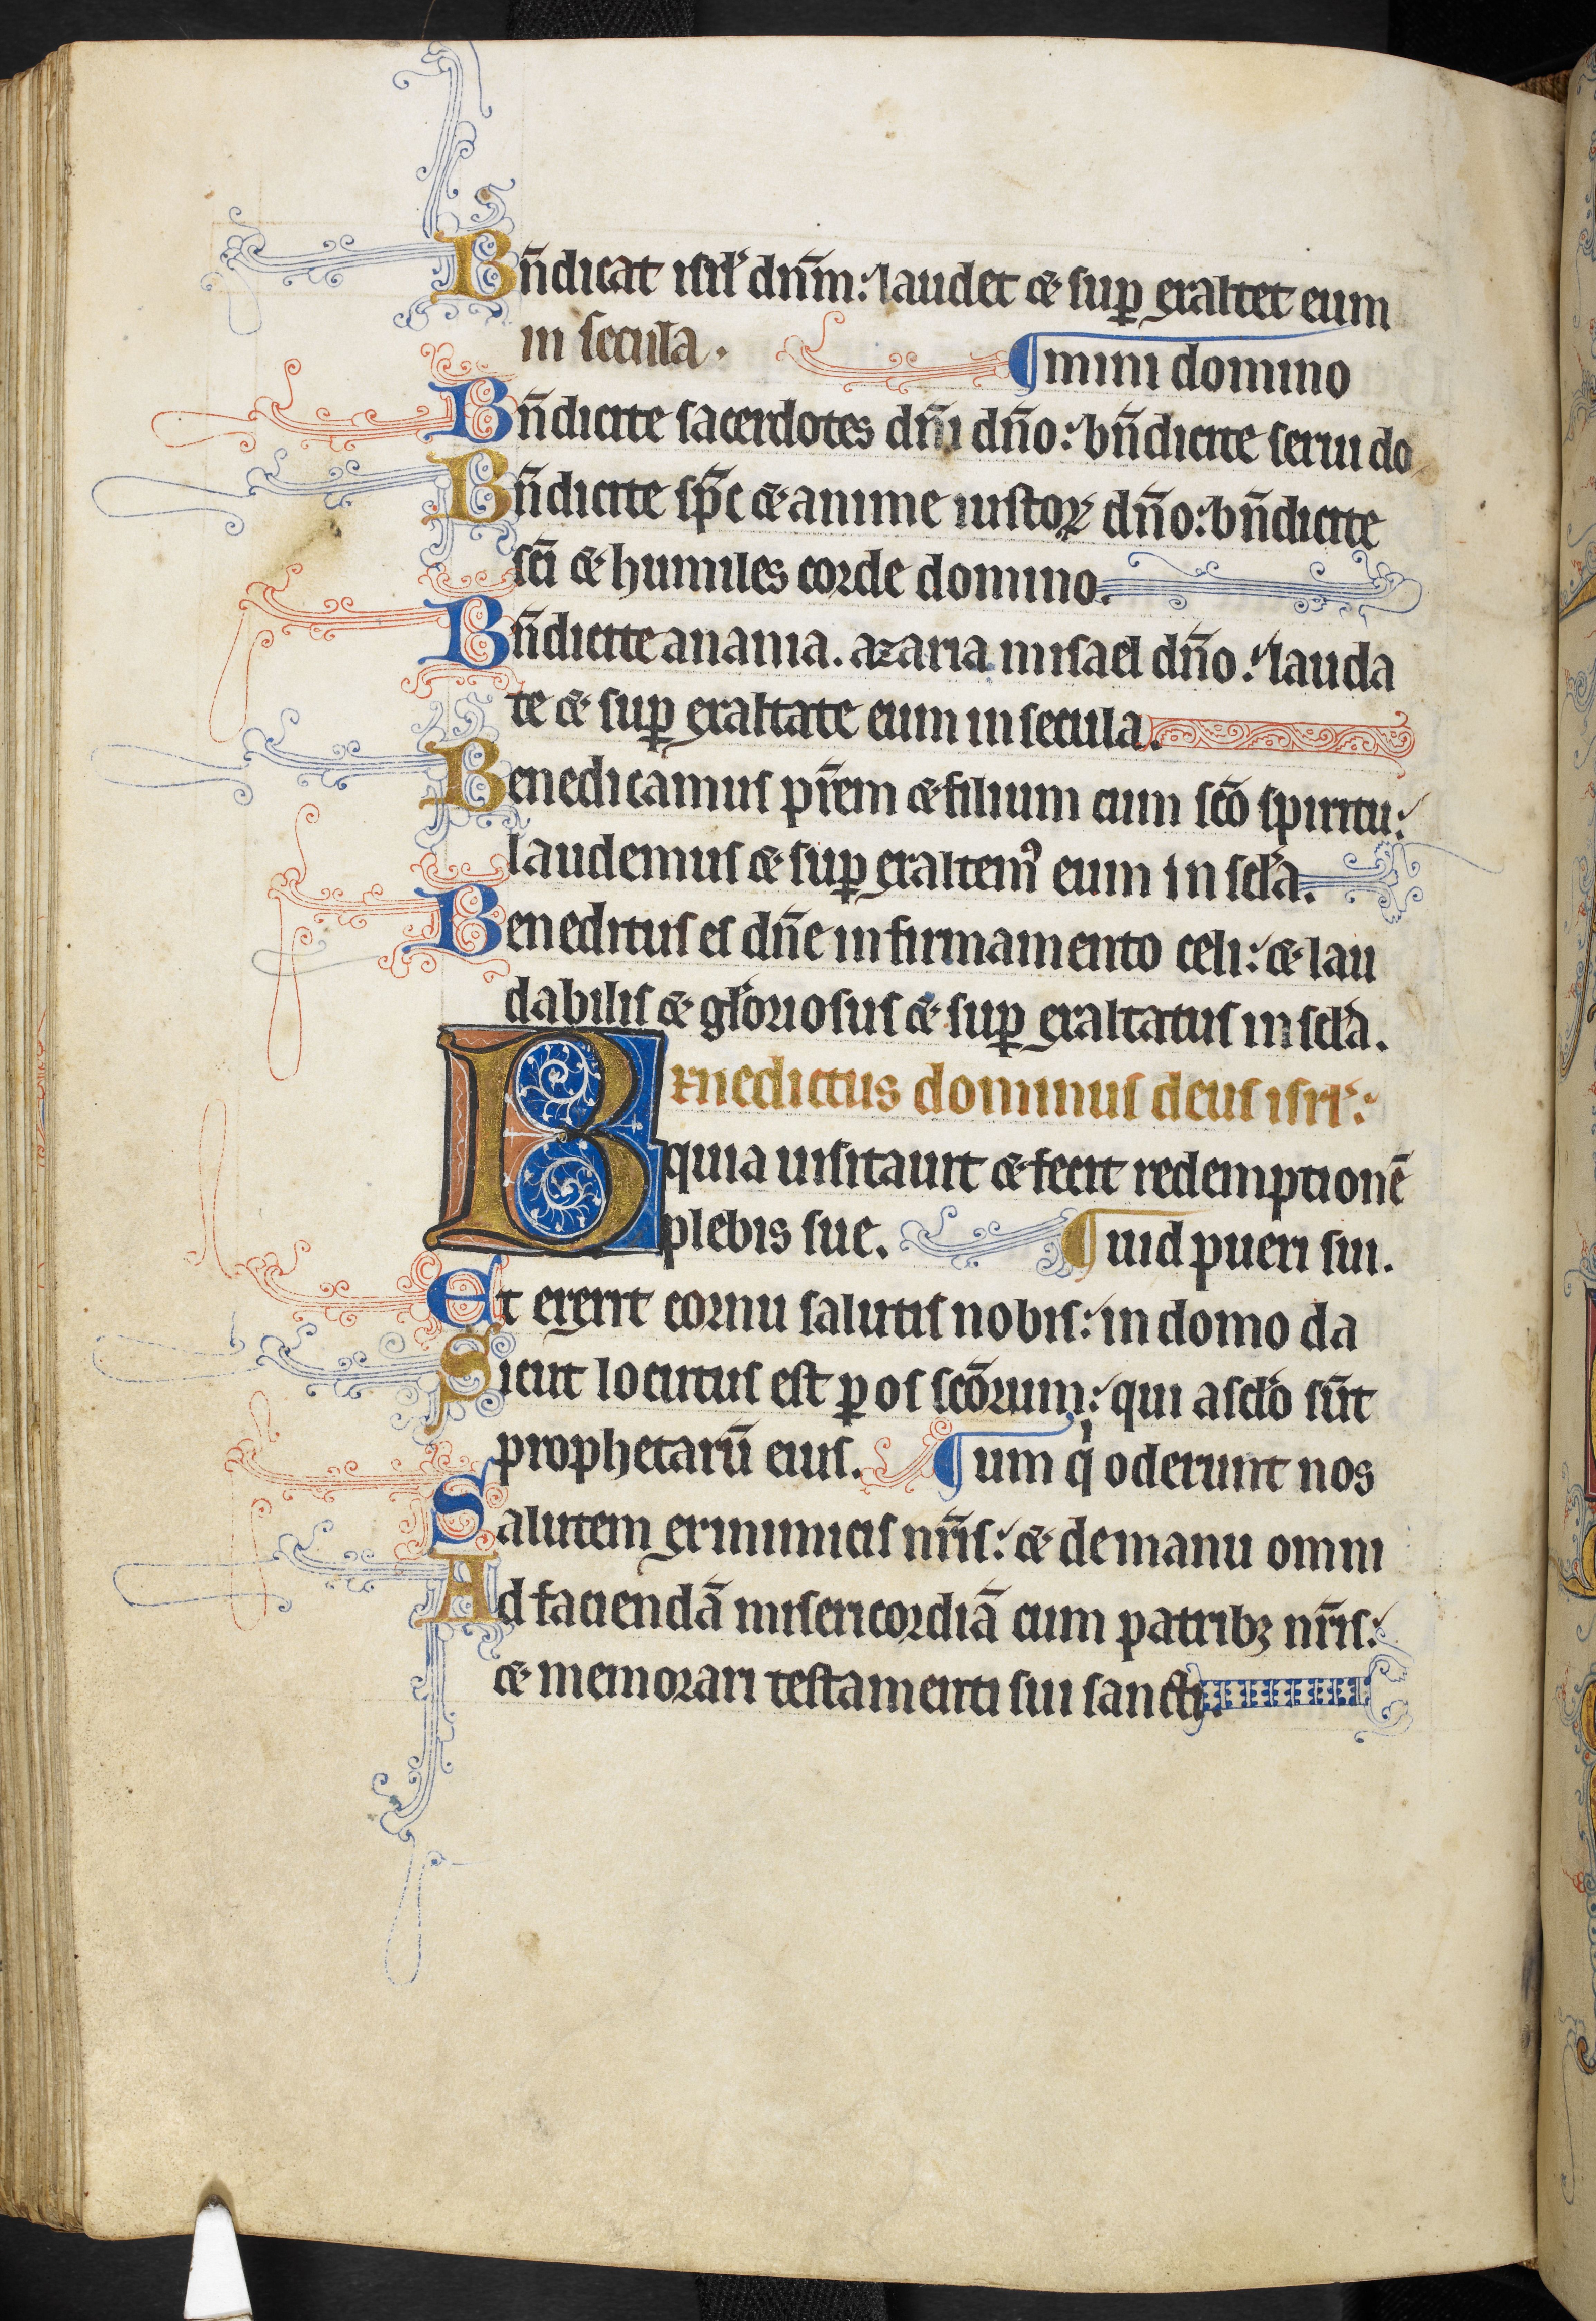 Bn̄dicat isrl̛ dn̄m: laudet ⁊ suꝑ exaltet eum
in secula.
¶mini domino
Bn̄dicite sacerdotes dn̄i dn̄o: bn̄dicite serui do
Bn̄dicite sp̄c ⁊ anime iustoꝝ dn̄o: bn̄dicite
sc̄i ⁊ humiles corde domino.
Bn̄dicite anania. azaria misael dn̄o: lauda
te ⁊ suꝑ exaltate eum in secula.
Benedicamus pr̄em ⁊ filium cum sc̄o spiritu:
laudemus ⁊ suꝑ exaltemꝰ eum in scl̛a.
Beneditus es dn̄e in firmamento celi: ⁊ lau
dabilis ⁊ gl̛oriosus ⁊ suꝑ exaltatus in scl̛a.
Benedictus dominus deus isrl̛:
quia uisitauit ⁊ fecit redemptionē
plebis sue.
¶uid pueri sui.
Et erexit cornu salutis nobis: in domo da
Sicut locutus est ꝑ os sc̄orum: qui a scl̛o sūt
prophetarū eius.
¶um qͥ oderunt nos
Salutem ex inimicis nr̄is: ⁊ de manu omni
Ad faciendā misericordiā cum patribꝫ nr̄is:
⁊ memorari testamenti sui sancti.